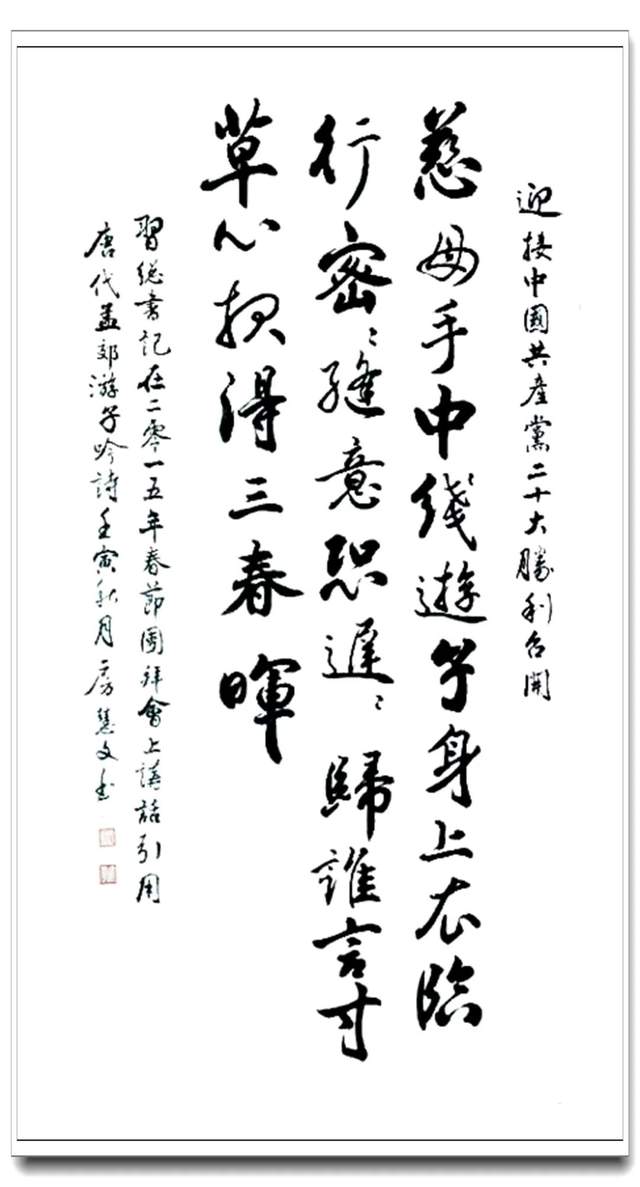 迎接中國共產黨二十大勝利召開
慈母手中綫遊子身上衣臨
行密〻縫意恐遲〻歸誰言寸
草心报得三春暉
習總書記在二零一五年春節團拜會上講話引用
唐代孟郊游子吟詩壬寅秋月房慧文書